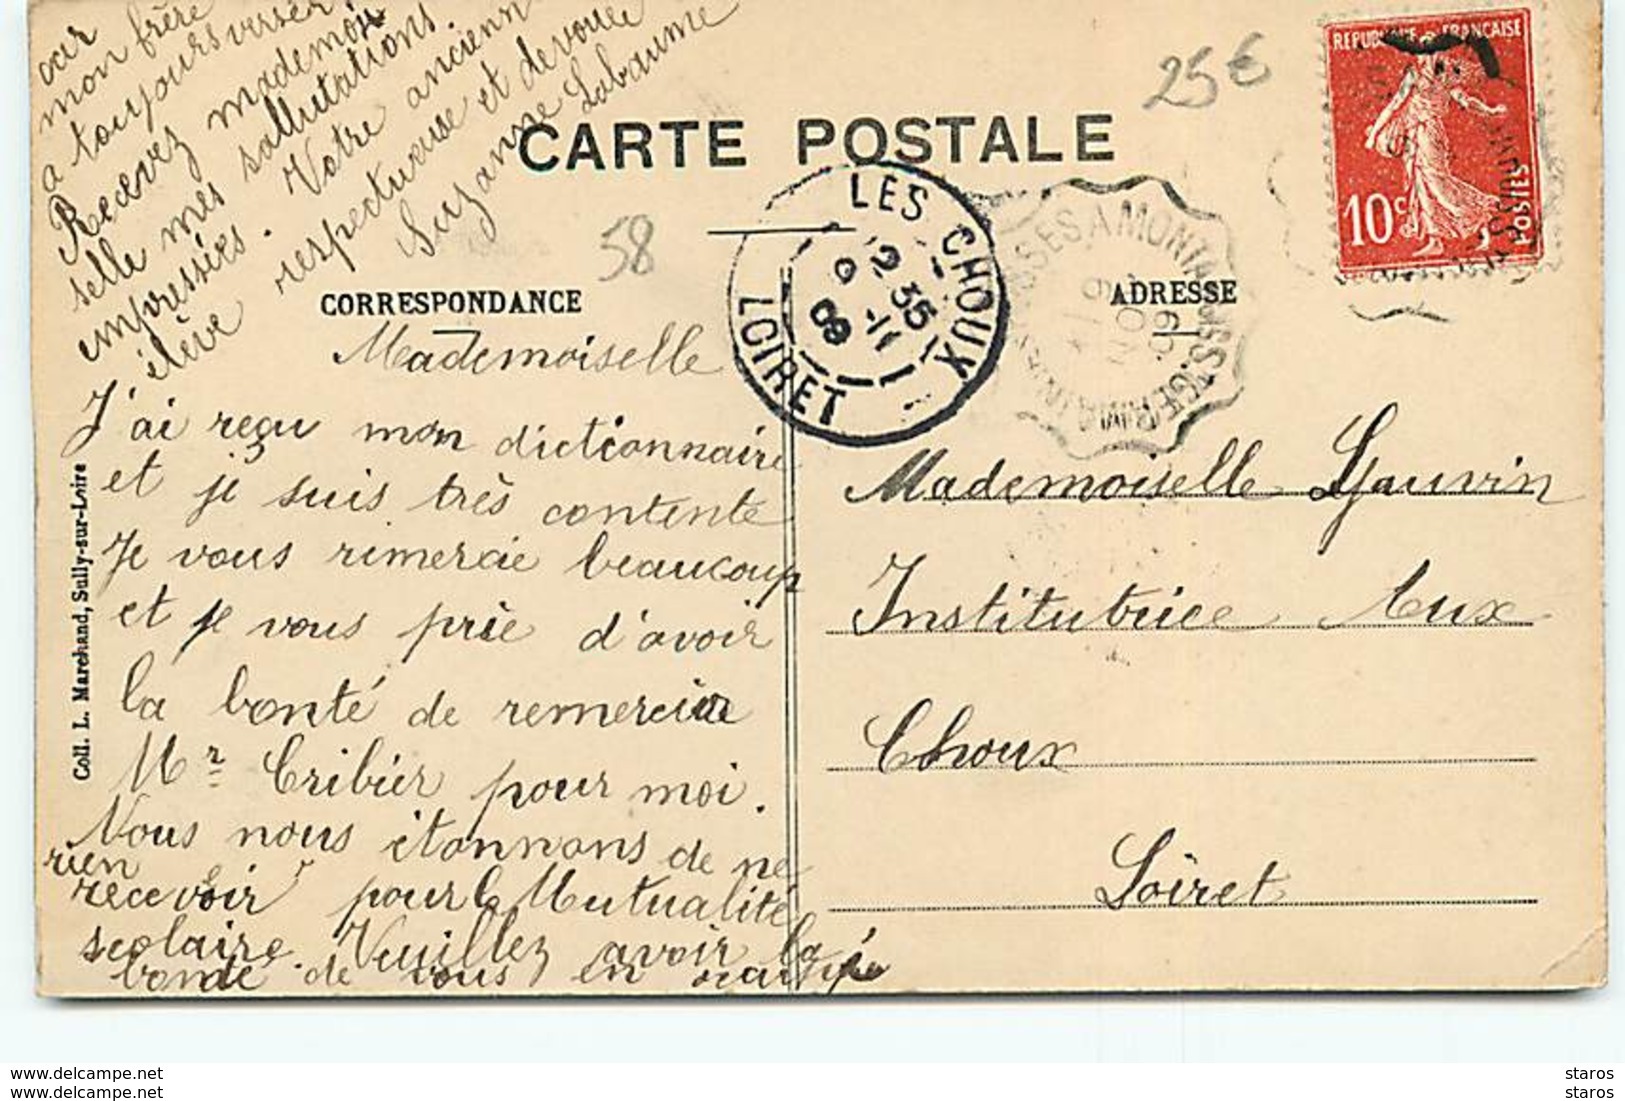 car
mon frère
a toujours versé.
Recevez mademoi
selle mes sallutations
empressées. Votre ancienne
élève respectueuse et dévouée
Suzanne Labaume
25€
CARTE POSTALE
58
REPUBLIQUE FRANÇAISE
10c
POSTES
LES CHOUX
2 35
9 -11
09
LOIRET
CORRESPONDANCE
ADRESSE
Mademoiselle
J'ai reçu mon dictionnaire
et je suis très contente
Je vous rimercie beaucoup
et je vous prie d'avoir
la bonté de remercier
Mr Cribier pour moi.
Nous nous étonnons de ne
rien
recevoir pour la Mutualité
scolaire. Veuillez avoir la
bonté de vous en
Coll. L. Marchand, Sully-sur-Loire
Mademoiselle Gauvin
Institutrice Aux
Choux
Loiret
www.delcampe.net
www.delcampe.net
staros
staros